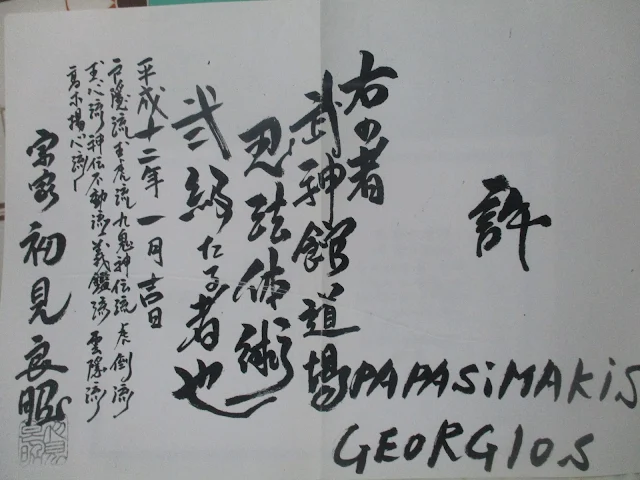 許
PAPASiMAKiS
GEORGIOS
右の者
武神館道場
忍法体術
弐級たる者也
平成十二年一月吉日
戸隠流玉虎流九鬼神伝流虎倒流
玉心流神伝不動流義鑑流雲隠流
高木揚心流
宗家 初見良昭